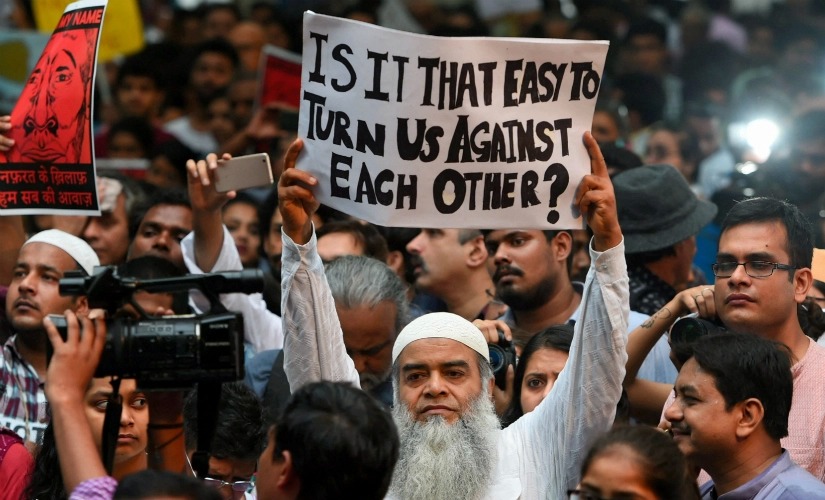 MY NAME
नफ़रत के ख़िलाफ़
हम सब की आवाज़
IS IT THAT EASY TO
TURN US AGAINST
EACH OTHER?
SONY